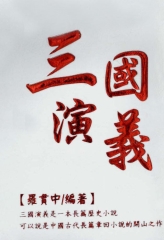 三國
演義
【羅貫中/編著】
三國演義是一本長篇歷史小說
可以說是中國古代長篇章回小說的開山之作